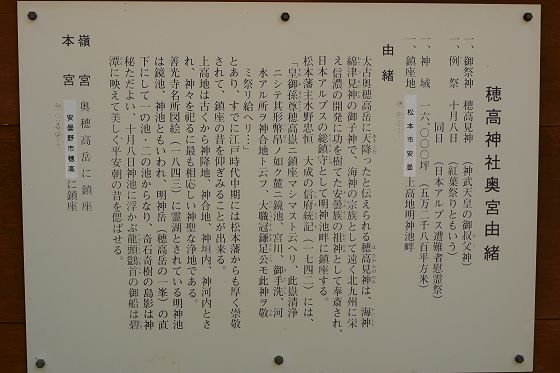 穂高神社奥宮由緒
一、御祭神　穂高見神　（神武天皇の御叔父神）
一、例　祭　十月八日　（紅葉祭りともいう）
同日　（日本アルプス遭難者慰霊祭）
一、神　域　一六、〇〇〇坪　（五万二千八百平方米）
一、鎮座地　松本市安曇　上高地明神池畔
由緒
太古奥穂高岳に天降ったと伝えられる穂高見神は、海神
綿津見神の御子神で、海神の宗族として遠く北九州に栄
え信濃の開発に功を樹てた安曇族の祖神として奉斎され、
日本アルプスの総鎮守として明神池畔に鎮座する。
松本藩主水野忠恒　大成の信府統記（一七四二）には、
「皇御孫尊穂高嶽ニ鎮座マシマスト云ヘリ、此嶽清浄
ニシテ其形幣帛ノ如ク麓ニ鏡池、宮川、御手洗、河
水アル所ヲ神合地ト云フ、大職冠鎌足公モ此神ヲ敬
ミ祭リ給ヘリ…」
とあり、すでに江戸時代中期には松本藩からも厚く崇敬
されて、鎮座の昔を仰ぎみることが出来る。
上高地は古くから神降地、神合地、神垣内、神河内とさ
れ、神々を祀るに最も相応しい神聖な浄地である。
善光寺名所図絵（一八四三）に霊湖とされている明神池
は鏡池、神池ともいわれ、明神岳（穂高岳の一峯）の直
下にして一の池・二の池からなり、奇石奇樹の島影は神
秘ただよい、十月八日神池に浮かぶ龍頭鷁首の御船は碧
潭に映えて美しく平安朝の昔を偲ばせる。
嶺　宮　奥穂高岳に鎮座
本　宮　安曇野市穂高　に鎮座